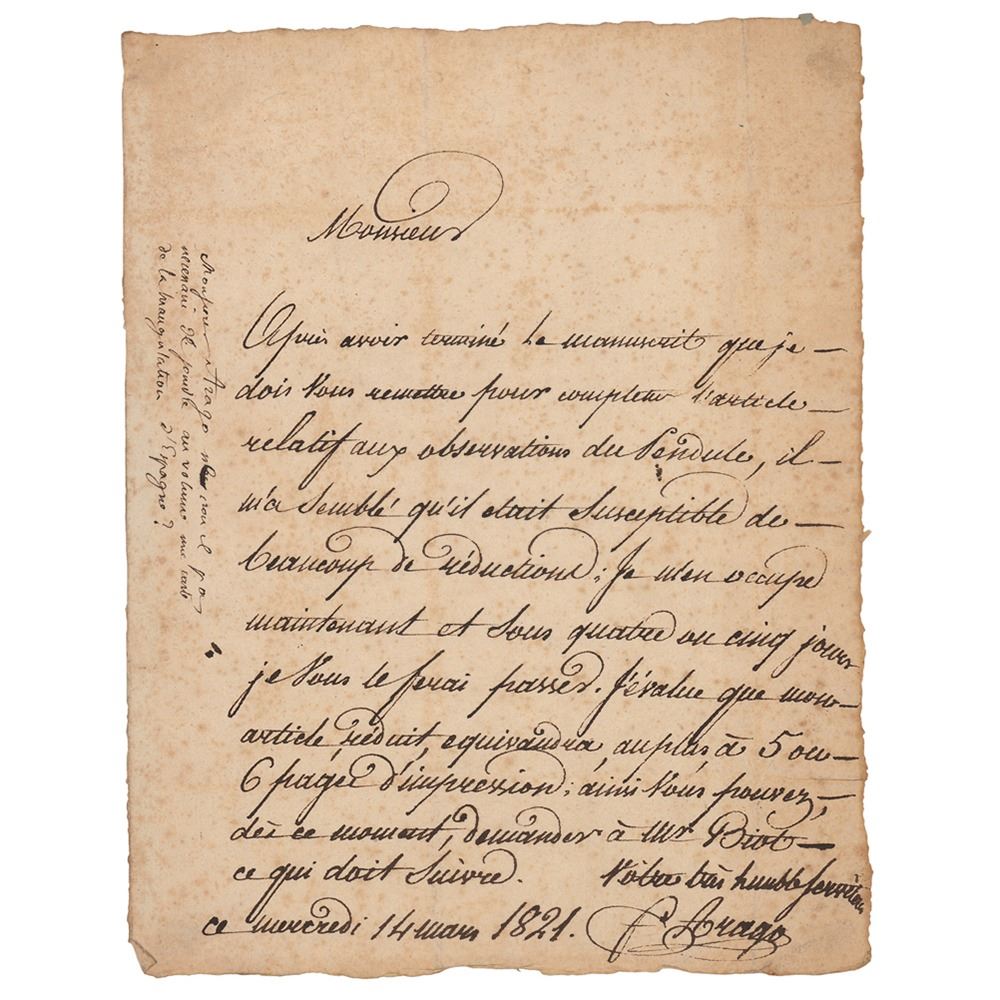 Monsieur
Après avoir terminé le manuscrit que je —
dois Vous remettre pour completer l'article —
relatif aux observations du Pendule, il —
m'a Semblé qu'il était Susceptible de —
beaucoup de réductions; Je m'en occupe
maintenant et Sous quatre ou cinq jours
je Vous le ferai passer. J'évalue que mon —
article réduit, equivaudra, au plus à 5 ou —
6 pages d'impression; ainsi Vous pouvez, —
dès ce moment, demander à Mr Biot —
ce qui doit Suivre. Votre très humble serviteur
ce mercredi 14 mars 1821. F. Arago
Monsieur Arago ne croit il pas
necessaire de joindre au volume une carte
de la triangulation d'Espagne?